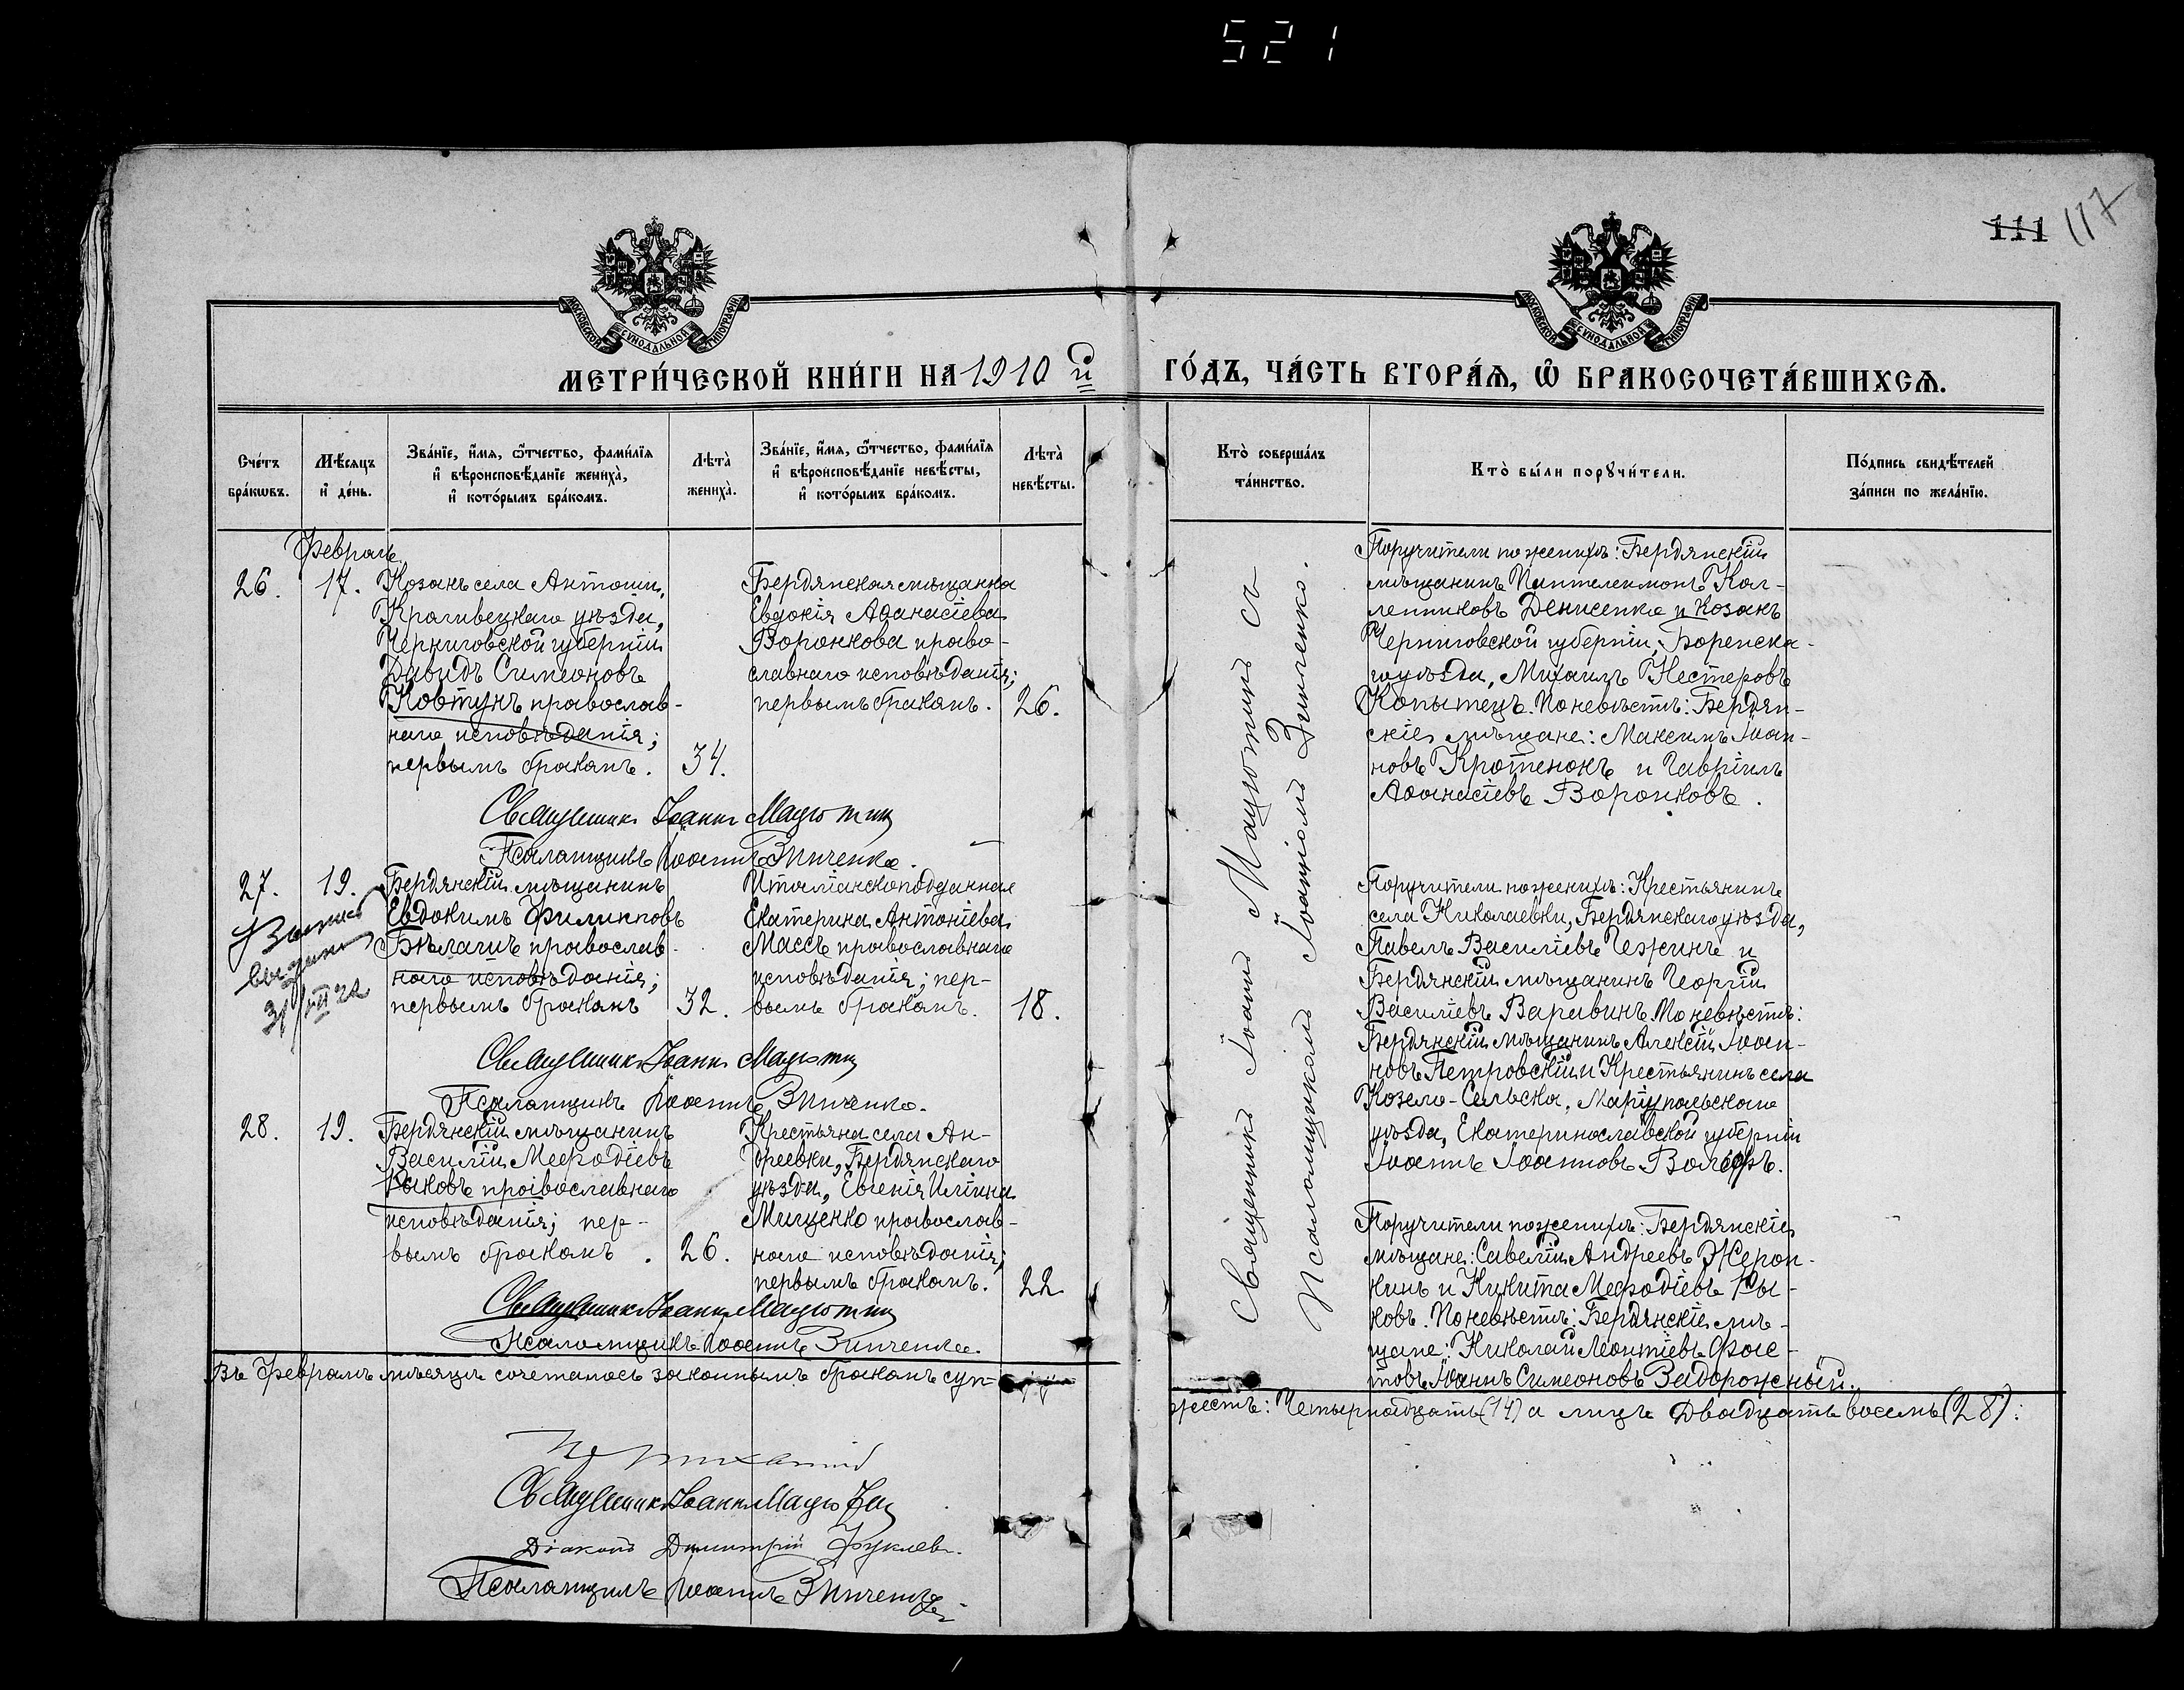 521
111 117
МОСКОВСКОЙ СѴНОДАЛЬНОЙ ТИПОГРАФІИ
МОСКОВСКОЙ СѴНОДАЛЬНОЙ ТИПОГРАФІИ
МЕТРИ́ЧЕСКОЙ КНИ́ГИ НА 1910 й ГО́ДЪ, ЧА́СТЬ ВТОРА́Ѧ, Ѽ БРАКОСОЧЕТА́ВШИХСѦ.
Сче́тъ
бра́кѡвъ.
Мѣ́сяцъ
и де́нь.
Зва́нїе, и́мя, ѻ҆́тчество, фами́лїя
и вѣроисповѣ́данїе жениха̀,
и кото́рымъ бра́комъ.
Лѣта̀
жениха̀.
Зва́нїе, и́мя, ѻ҆́тчество, фами́лїя
и вѣроисповѣ́данїе невѣ́сты,
и кото́рымъ бра́комъ.
Лѣта̀
невѣ́сты.
Кто̀ соверша́лъ
та́инство.
Кто̀ бы́ли порꙋчи́тели.
По́дпись свидѣ́телей
за́писи по жела́нїю.
Февраль
26. 17.
Козакъ села Антоши,
уѣзда,
Черниговской губерніи
Давидъ Симеоновъ
Ковтунъ православ-
наго исповѣданія;
первымъ бракомъ. 34.
Бердянская мѣщанка
Евдокія Аѳанасіева
Воронкова право-
славнаго исповѣданія;
первымъ бракомъ. 26.
Священникъ Іоаннъ Мацютинъ
Псаломщикъ Іоаннъ Зинченко.
Поручители по женихѣ: Бердянскій
мѣщанинъ Пантелеимонъ Кал-
линиковъ Денисенко и Козакъ
Черниговской губерніи,
уѣзда, Михаилъ Нестеровъ
Копытецъ. По невѣстѣ: Бердян-
скіе мѣщане: Максимъ Іоан-
новъ Кротенокъ и Гавріилъ
Аѳанасіевъ Воронковъ.
27. 19.
Бердянскій мѣщанинъ
Евдокимъ Филипповъ
православ-
наго исповѣданія;
первымъ бракомъ 32.
Итальянскоподданная
Екатерина Антоніева
Массъ православнаго
исповѣданія; пер-
вымъ бракомъ. 18.
Священникъ Іоаннъ Мацютинъ
Псаломщикъ Іоаннъ Зинченко.
Поручители по женихѣ: Крестьянинъ
села Николаевки, Бердянскаго уѣзда,
Павелъ Василіевъ Чежинъ и
Бердянскій мѣщанинъ Георгій
Василіевъ Варивинъ. По невѣстѣ:
Бердянскій мѣщанинъ Алексій Іоан-
новъ Петровскій и Крестьянинъ села
Козело-Сельска, Маріупольскаго
уѣзда, Екатеринославской губерніи
Іоаннъ Іоанновъ
28. 19.
Бердянскій мѣщанинъ
Василій Меѳодіевъ
Рыковъ православнаго
исповѣданія; пер-
вымъ бракомъ. 26.
Крестьяна села Ан-
дреевки, Бердянскаго
уѣзда, Евгенія Иліина
Мищенко православ-
наго исповѣданія;
первымъ бракомъ. 22
Священникъ Іоаннъ Мацютинъ
Псаломщикъ Іоаннъ Зинченко.
Поручители по женихѣ: Бердянскіе
мѣщане: Савелій Андреевъ Жероп-
кинъ и Никита Меѳодіевъ Ры-
ковъ. По невѣстѣ: Бердянскіе мѣ-
щане: Николай Леонтіевъ Фоме-
товъ Іоаннъ Симеоновъ Задорожный.
Священникъ Іоаннъ Мацютинъ съ
Псаломщикомъ Іоанномъ Зинченко.
Въ Февралѣ мѣсяцѣ сочеталось законнымъ бракомъ суп-
ружествъ: Четырнадцать (14) а лицъ Двадцать восемь (28):
Священникъ Іоаннъ Мацютинъ
Діаконъ Димитрій
Псаломщикъ Іоаннъ Зинченко